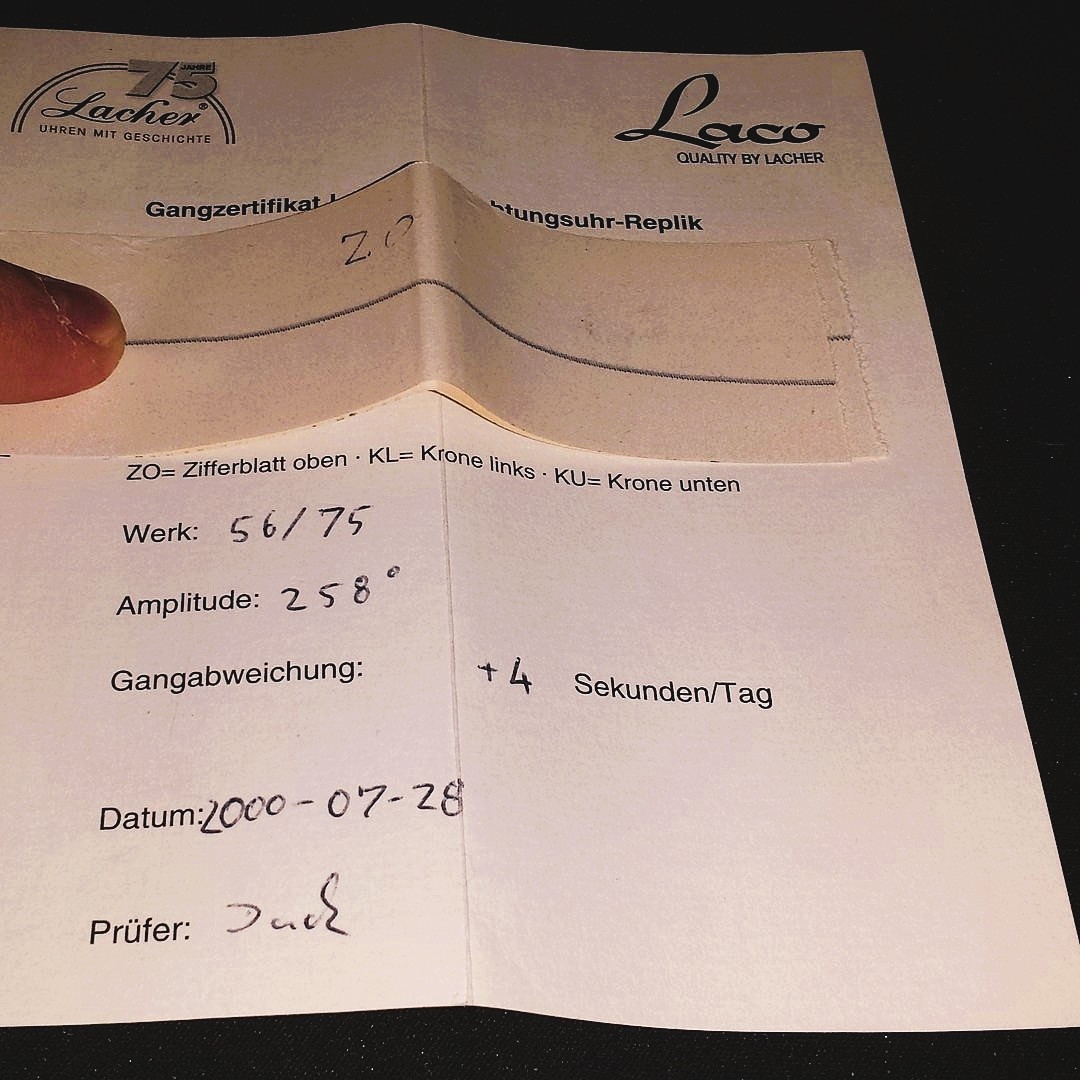 75 JAHRE
Lacher®
UHREN MIT GESCHICHTE
Laco
QUALITY BY LACHER
Gangzertifikat htungsuhr-Replik
ZO
ZO= Zifferblatt oben · KL= Krone links · KU= Krone unten
Werk: 56/75
Amplitude: 258°
Gangabweichung: +4 Sekunden/Tag
Datum: 2000-07-28
Prüfer: